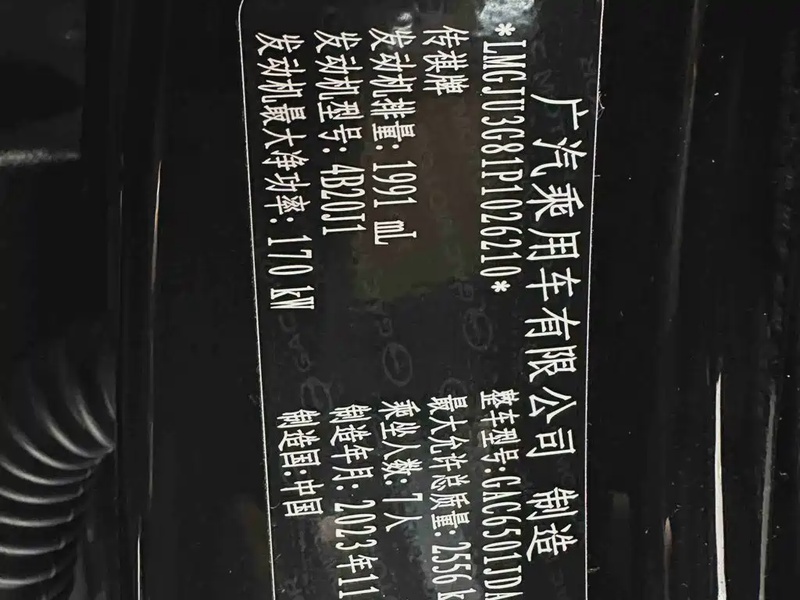 广汽乘用车有限公司 制造
*LMGJU3G81P1026210* 整车型号:GAC6501JDA
传祺牌 最大允许总质量:2556 k
发动机排量:1991 mL 乘坐人数:7人
发动机型号:4B20J1 制造年月:2023年11
发动机最大净功率:170 kW 制造国:中国